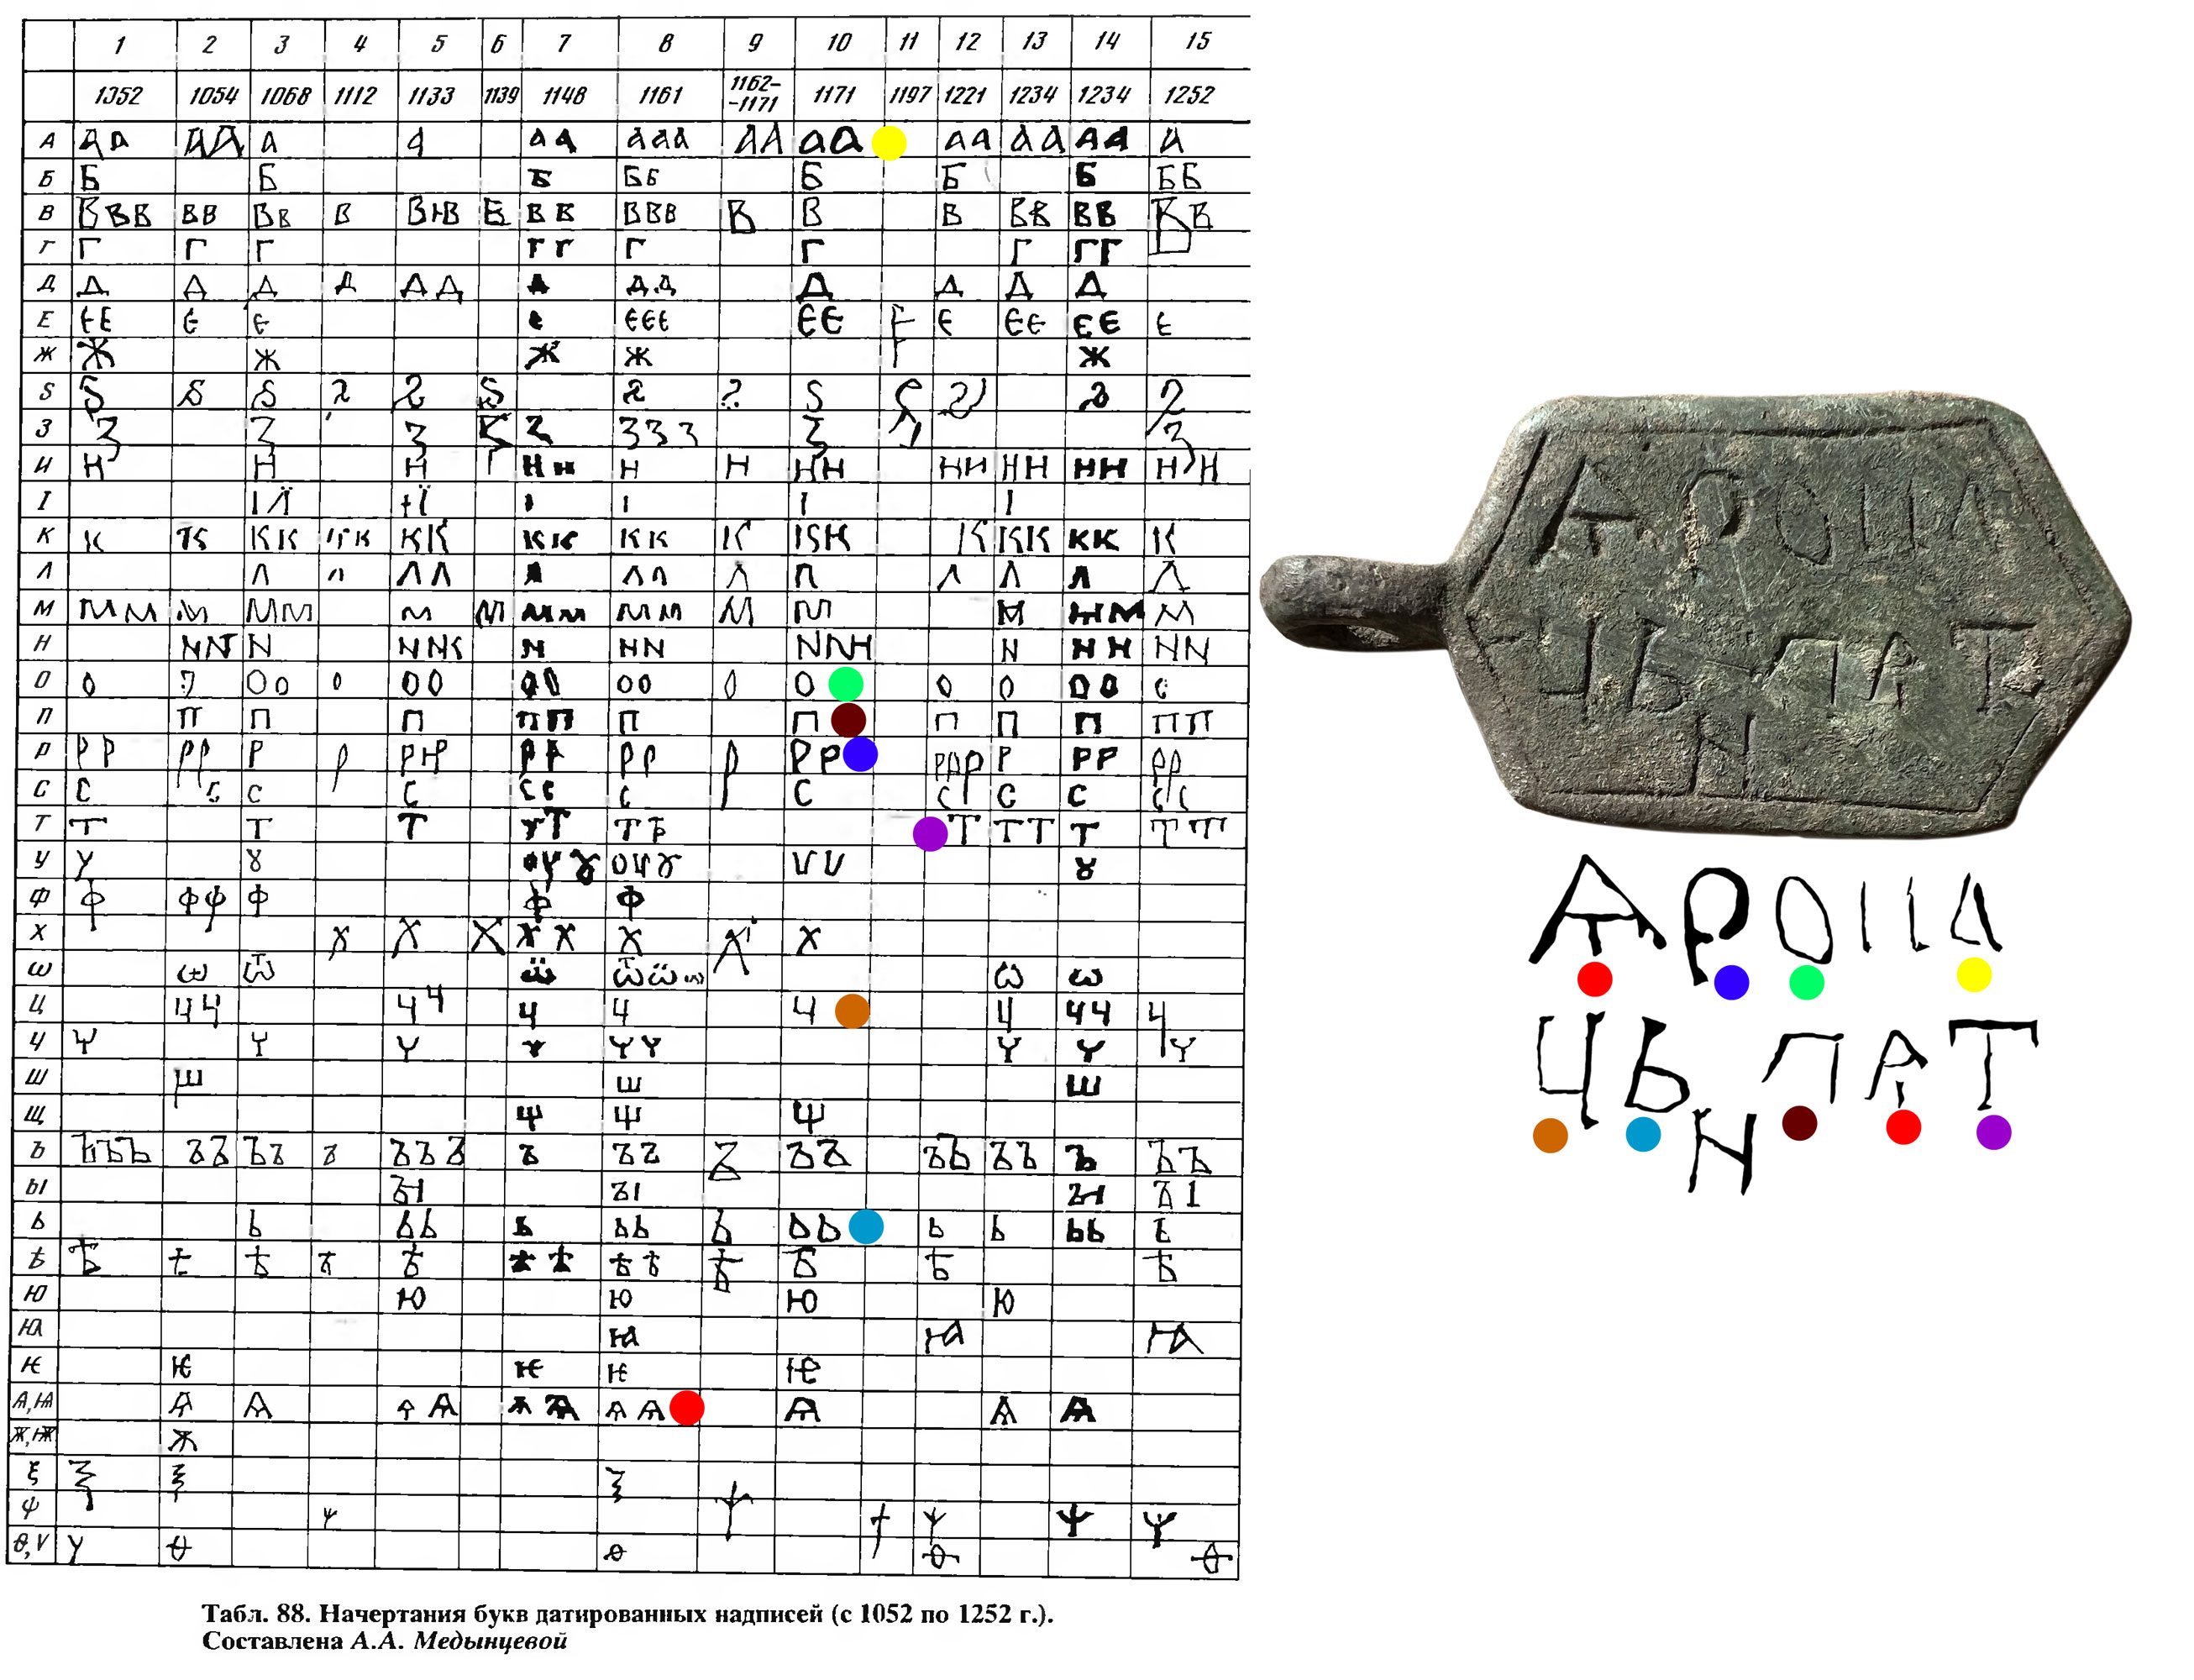 1 2 3 4 5 6 7 8 9 10 11 12 13 14 15
1352 1054 1068 1112 1133 1139 1148 1161 1162-1171 1171 1197 1221 1234 1234 1252
А А А А А А А А А А А А А А А А А А А А А А А А
Б Б Б Б Б Б Б Б Б Б Б
В В В В В В В В В В Ю В В В В В В В В В В В В В В В В В
Г Г Г Г Г Г Г Г Г Г Г
Д Д Д Д Д Д Д Д Д Д Д Д Д Д
Е Е Е Е Е Е Е Е Е Е Е Е Е Е Е Е Е Е
Ж Ж Ж Ж Ж Ж
Ѕ Ѕ Ѕ Ѕ Ѕ Ѕ Ѕ Ѕ Ѕ Ѕ Ѕ Ѕ Ѕ Ѕ
З З З З З З З З З З З
И Н Н Н Н Н Н Н Н Н Н И Н Н Н Н Н Н
І І Ї І Ї І І І І
К К К К К К К К К К К К К К К К К К К К К
Л Л Л Л Л Л Л Л Л Л Л Л Л Л
М М М М М М М М М М М М М М М М М М М
Н N N N N N N N N N N N Н N Н Н N N
О О О О О О О О О О О О О О О О О О О
П П П П П П П П П П П П П П
Р Р Р Р Р Р Р Р Р Р Р Р Р Р Р Р Р Р Р Р Р Р Р Р
С С С С С С С С С С С С С С С
Т Т Т Т Т Т Т Ъ Т Т Т Т Т Т
У
Ф Ф Ф Ф Ф Ф Ф
Х Х Х Х Х Х Х Х Х
Ѡ
Ц Ц Ц Ц Ц Ц Ц Ц Ц Ц Ц Ц
Ч Ч Ч Ч Ч Ч Ч Ч Ч Ч
Ш Ш Ш Ш
Щ Щ Щ Щ
Ъ Ъ Ъ Ъ Ъ Ъ Ъ Ъ Ъ Ъ Ъ Ъ Ъ Ъ Ъ Ъ Ъ Ъ Ъ Ъ Ъ Ъ Ъ Ъ Ъ
Ы Ы Ы Ы Ы
Ь Ь Ь Ь Ь Ь Ь Ь Ь Ь Ь Ь Ь Ь Ь
Ѣ Ѣ Ѣ Ѣ Ѣ Ѣ Ѣ Ѣ Ѣ Ѣ Ѣ Ѣ Ѣ Ѣ
Ю Ю Ю Ю Ю
Ꙗ Ꙗ Ꙗ Ꙗ
Ѥ Ѥ Ѥ Ѥ Ѥ
Ѧ, Ѩ Ѧ Ѧ Ѧ Ѧ Ѧ Ѧ Ѧ Ѧ Ѧ Ѧ Ѧ
Ѫ, Ѭ Ѫ
ξ ξ ξ ξ
ψ ψ ψ ψ ψ ψ ψ
Ѳ, V V Ѳ Ѳ Ѳ Ѳ
Табл. 88. Начертания букв датированных надписей (с 1052 по 1252 г.).
Составлена А.А. Медынцевой
ѦРОПА
ЦЬПѦТ
Н
ѦРОПА
ЦЬПѦТ
Н